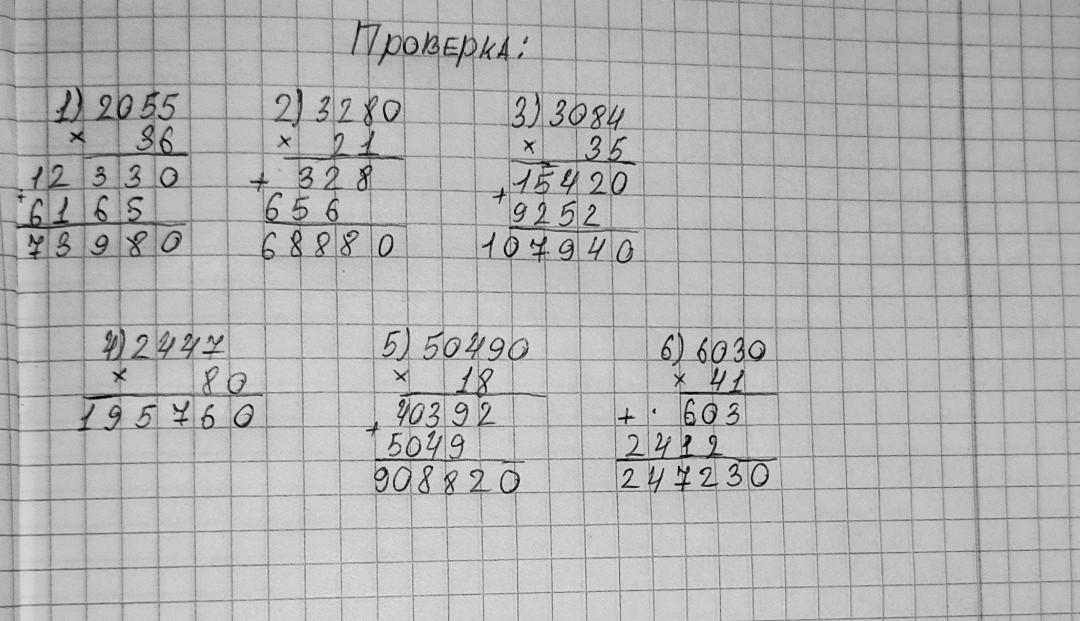 Проверка:
1) 2055 2) 3280 3) 3084
× 36 × 21 × 35
12330 + 328 15420
+ 6165 656 + 9252
73980 68880 107940
4) 2447 5) 50490 6) 6030
× 80 × 18 × 41
195760 40392 + · 603
+ 5049 2412
908820 247230